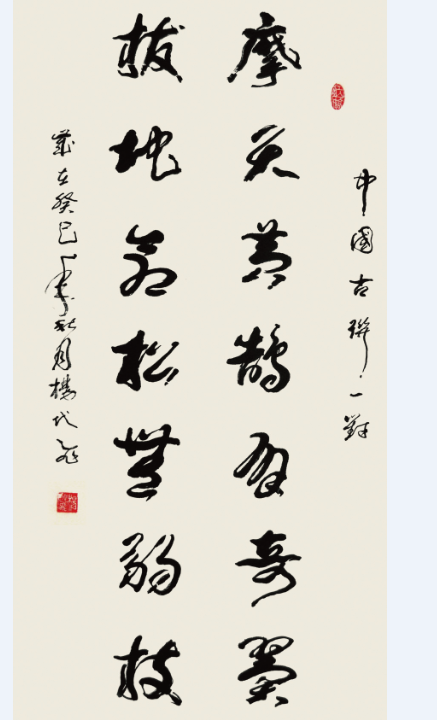 中國古聯一對
摩天黃鵠有奇翼
拔地蒼松無弱枝
歲在癸巳年秋月